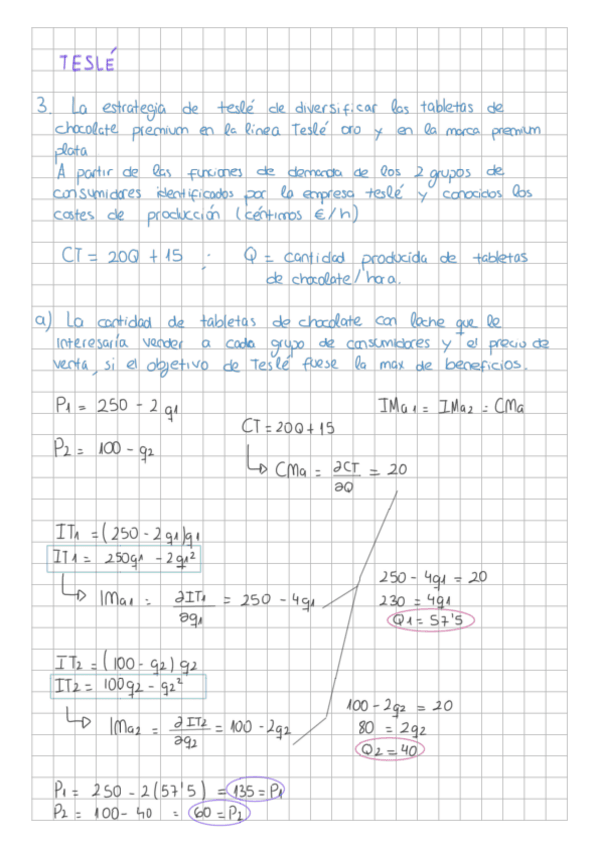 TESLÉ
3. La estrategia de teslé de diversificar las tabletas de
chocolate premium en la linea Teslé oro y en la marca premium
plata
A partir de las funciones de demanda de los 2 grupos de
consumidores identificados por la empresa teslé y conocidos los
costes de producción (céntimos €/h)
CT = 20Q + 15 ; Q = cantidad producida de tabletas
de chocolate/hora.
a) La cantidad de tabletas de chocolate con leche que le
interesaría vender a cada grupo de consumidores y el precio de
venta, si el objetivo de Teslé fuese la max de beneficios.
P1 = 250 - 2q1
IMa1 = IMa2 = CMa
CT = 20Q + 15
P2 = 100 - q2
↳ CMa = ∂CT/∂Q = 20
IT1 = (250 - 2q1)q1
IT1 = 250q1 - 2q1²
↳ IMa1 = ∂IT1/∂q1 = 250 - 4q1
250 - 4q1 = 20
230 = 4q1
Q1 = 57'5
IT2 = (100 - q2) q2
IT2 = 100q2 - q2²
↳ IMa2 = ∂IT2/∂q2 = 100 - 2q2
100 - 2q2 = 20
80 = 2q2
Q2 = 40
P1 = 250 - 2(57'5) = 135 = P1
P2 = 100 - 40 = 60 = P2